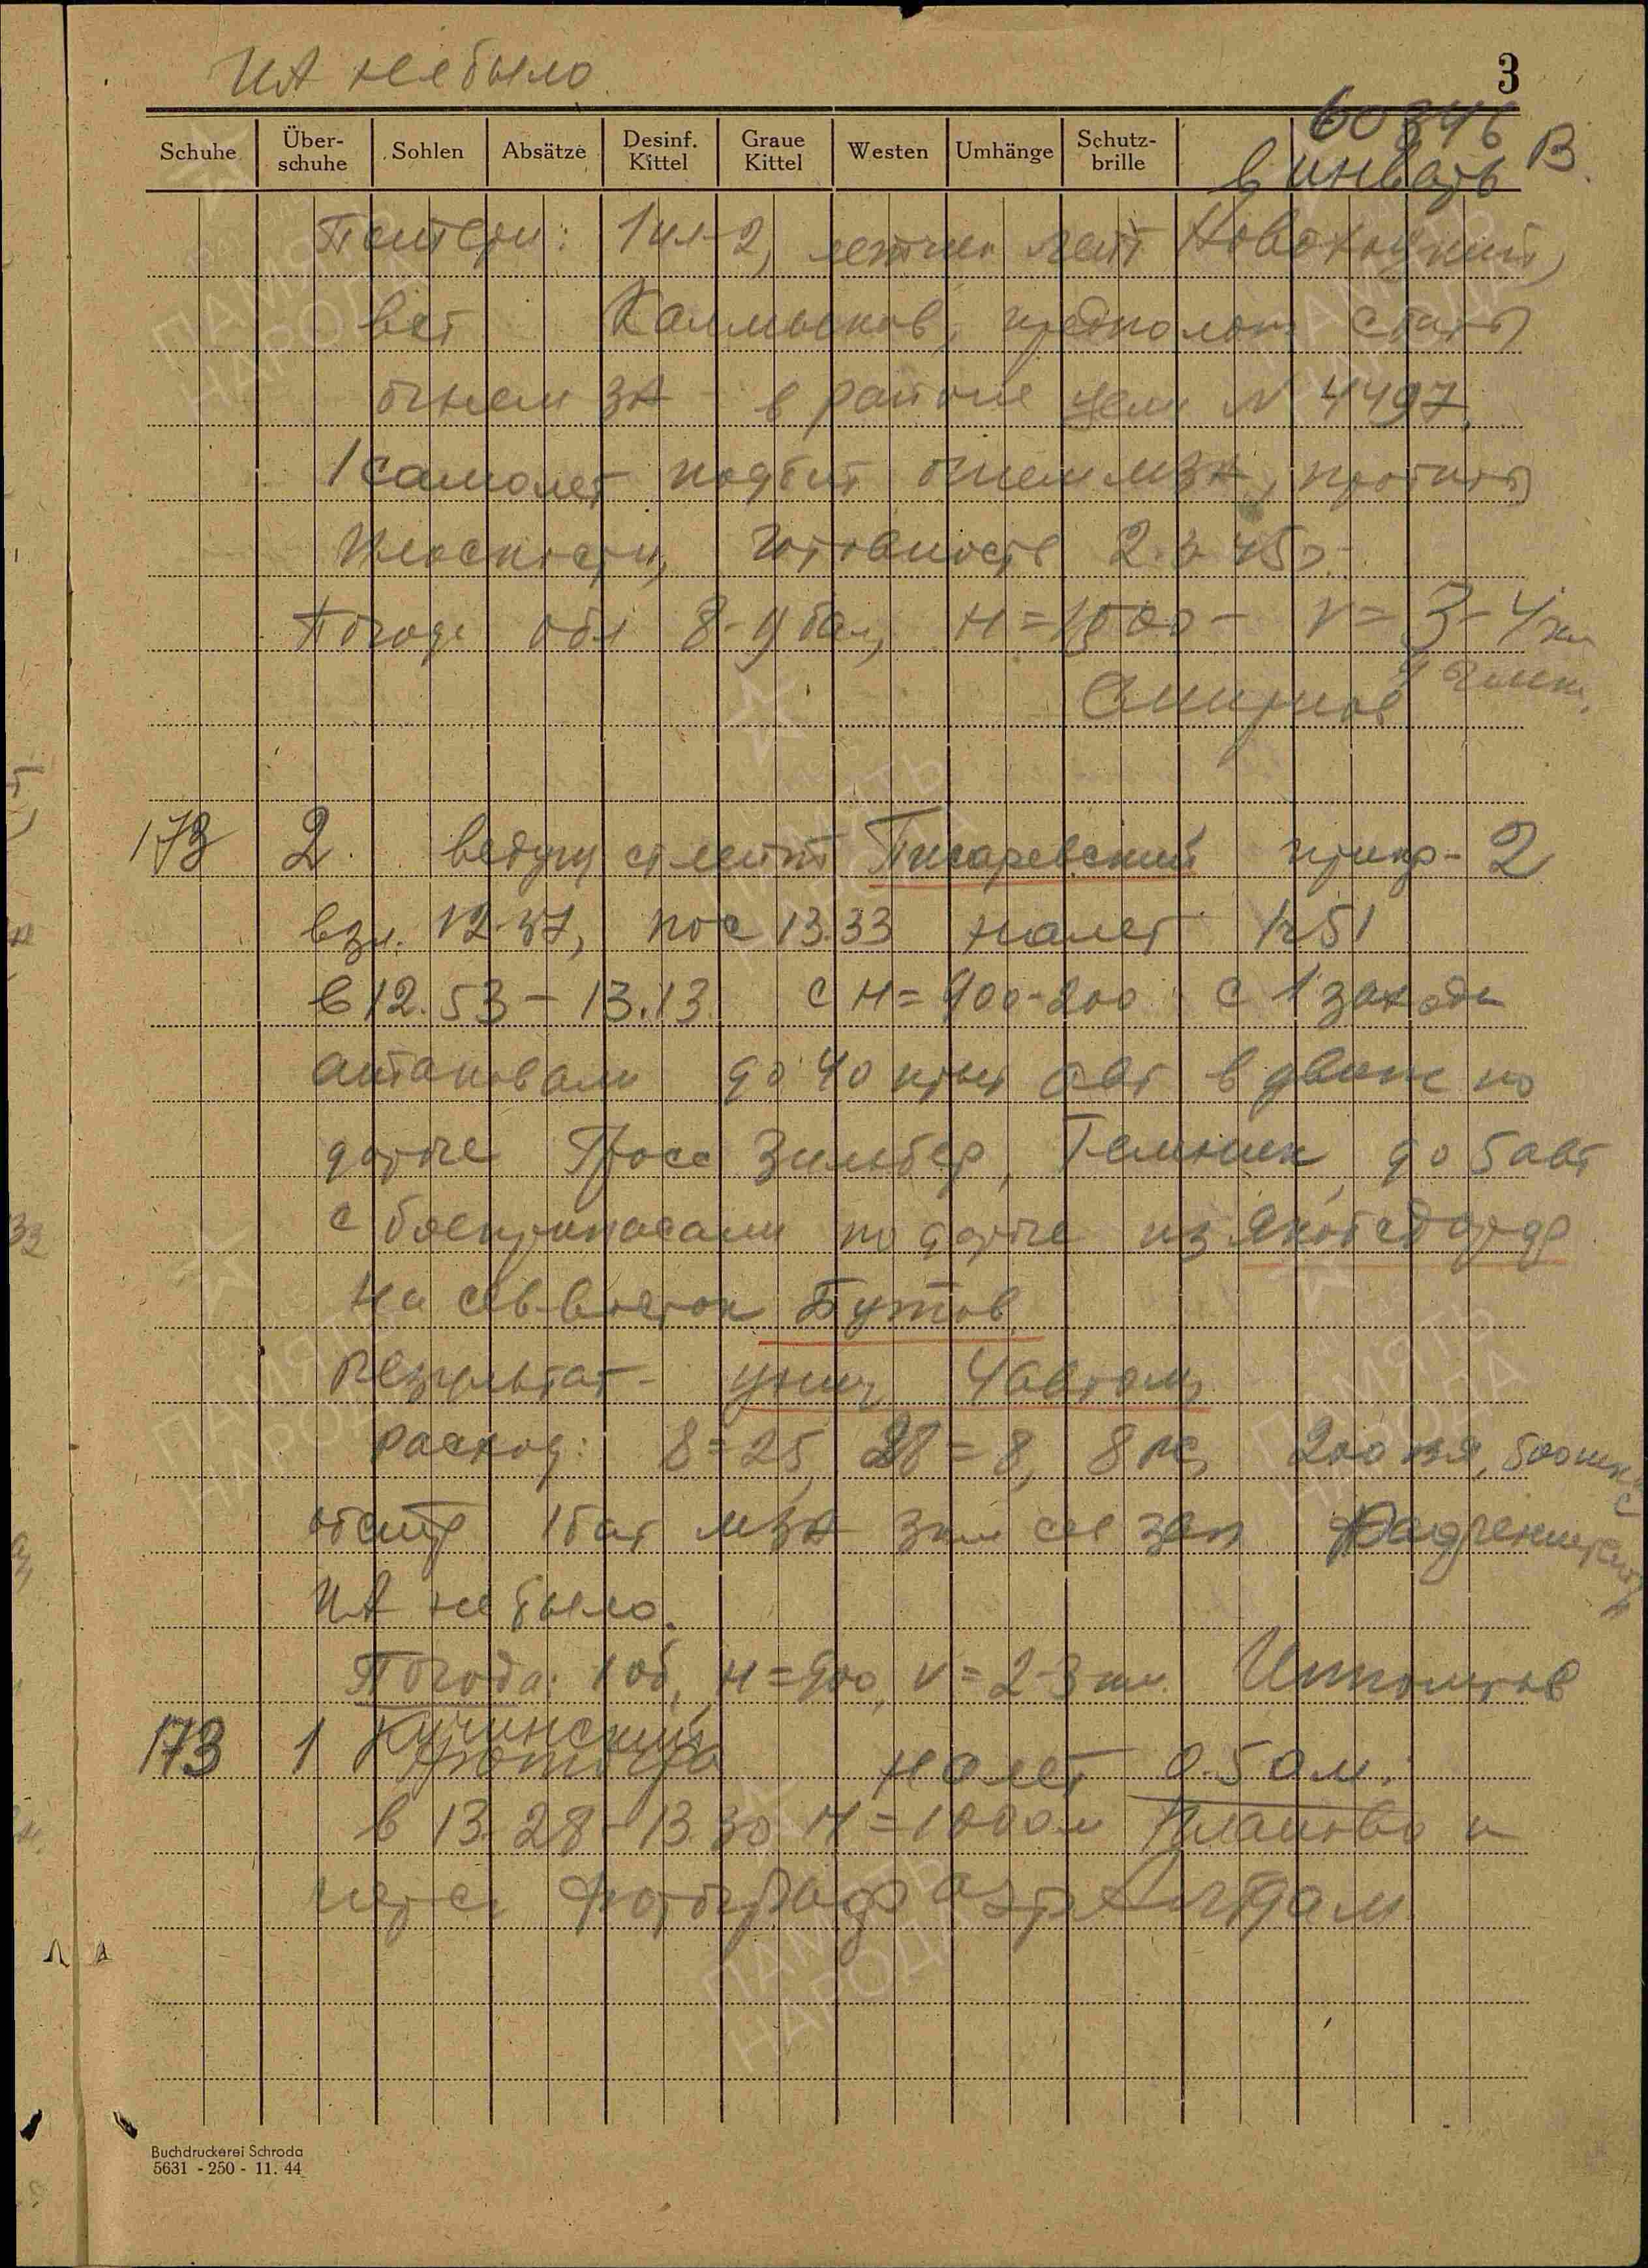 ИА не было
3
60346
В
в инварь
Schuhe Über-schuhe Sohlen Absätze Desinf. Kittel Graue Kittel Westen Umhänge Schutz-brille
Потери: 1 ил-2, летчик лейт
вст Калмыков, предполож сбиты
огнем ЗА в районе цели N 4497.
1 самолет подбит огнем МЗА, пробиты
плоскости, готовность 2.3.45г.
Погода обл 8-9 бал, H=1500 - V= 3-4 км
Смирнов
173 2. ведущ ст лейт Писаревский прикр- 2
взл. 12.37, пос 13.33 налет 1ч51
в 12.53 - 13.13. с H= 900-200 с 1 захода
атаковали до 40 крыт авт в движ по
дороге Гросс Зильбер, Темник, до 5 авт
с боеприпасами по дороге из Якобсдорф
на сев-восток Бутов.
Результат- унич 4 автом,
расход: 8=25, 8 = 8, 8 РС, 200 ВЯ, 500 шк
обстр 1 бат МЗА 3 км сев зап
ИА не было.
Погода: 10 б, H=900, V=2-3 км.
173 1 Кучинский налет 0.50 м.
в 13.28-13.30 H=1000 м планово и
фотограф аэр Альтдам
Buchdruckerei Schroda
5631 - 250 - 11. 44
ПАМЯТЬ НАРОДА